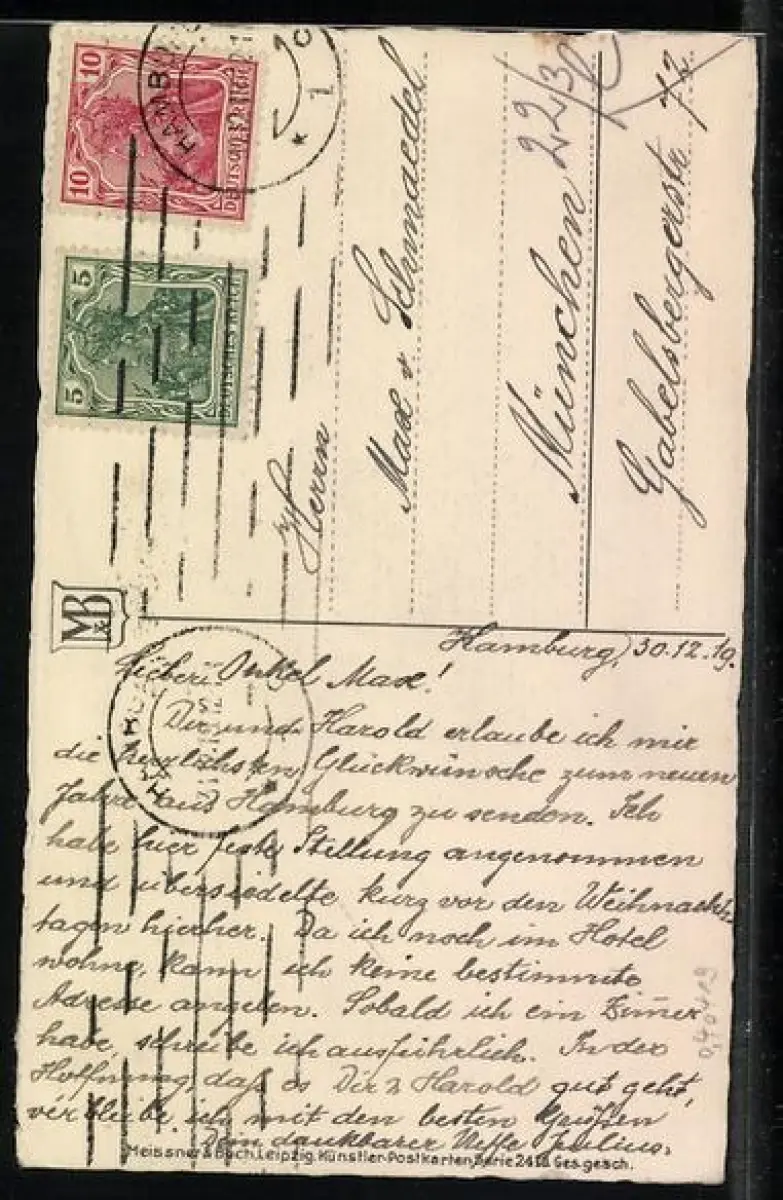 10
10
DEUTSCHES REICH
HAMBURG
* 1
5
5
DEUTSCHES REICH
Herrn
Max v Schmaedel
München
Gabelsbergerstr 72
M&B
Hamburg, 30.12.19.
Lieber Onkel Max!
Dir und Harold erlaube ich mir
die herzlichsten Glückwünsche zum neuen
Jahre aus Hamburg zu senden. Ich
habe hier feste Stellung angenommen
und übersiedelte kurz vor den Weihnachts
tagen hierher. Da ich noch im Hotel
wohne, kann ich keine bestimmte
Adresse angeben. Sobald ich ein Zimer
habe, schreibe ich ausführlich. In der
Hoffnung, daß es Dir u Harold gut geht,
verbleibe ich mit den besten Grüßen
Dein dankbarer Neffe Julius.
Meissner & Buch, Leipzig. Künstler-Postkarten Serie 2418 Ges. gesch.